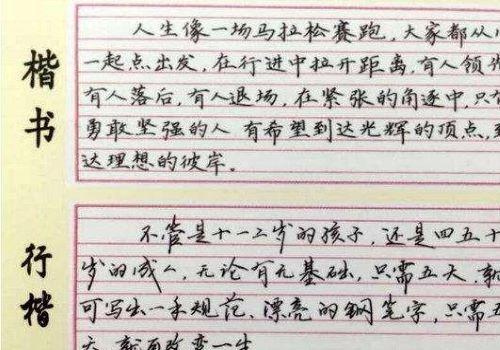 楷书
人生像一场马拉松赛跑，大家都从
一起点出发，在行进中拉开距离，有人领先
有人落后，有人退场，在紧张的角逐中，只有
勇敢坚强的人 有希望到达光辉的顶点，到
达理想的彼岸。
行楷
不管是十一二岁的孩子，还是四五十
岁的成人，无论有无基础，只需五天，就
可写出一手规范、漂亮的钢笔字，只需五
天，就可改变一生